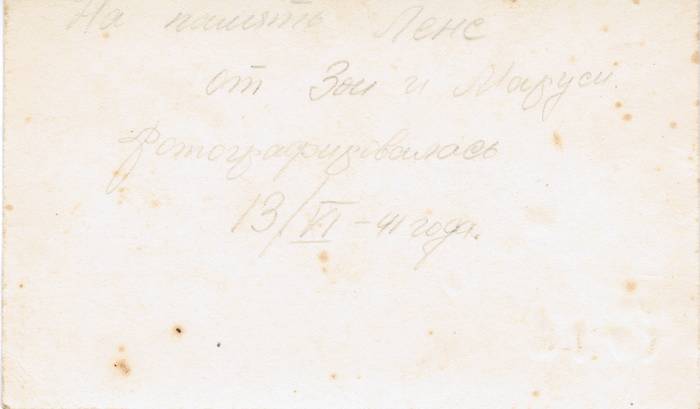 На память Лене
от Зои и Маруси.
фотографировалась
13/VI-41 года.